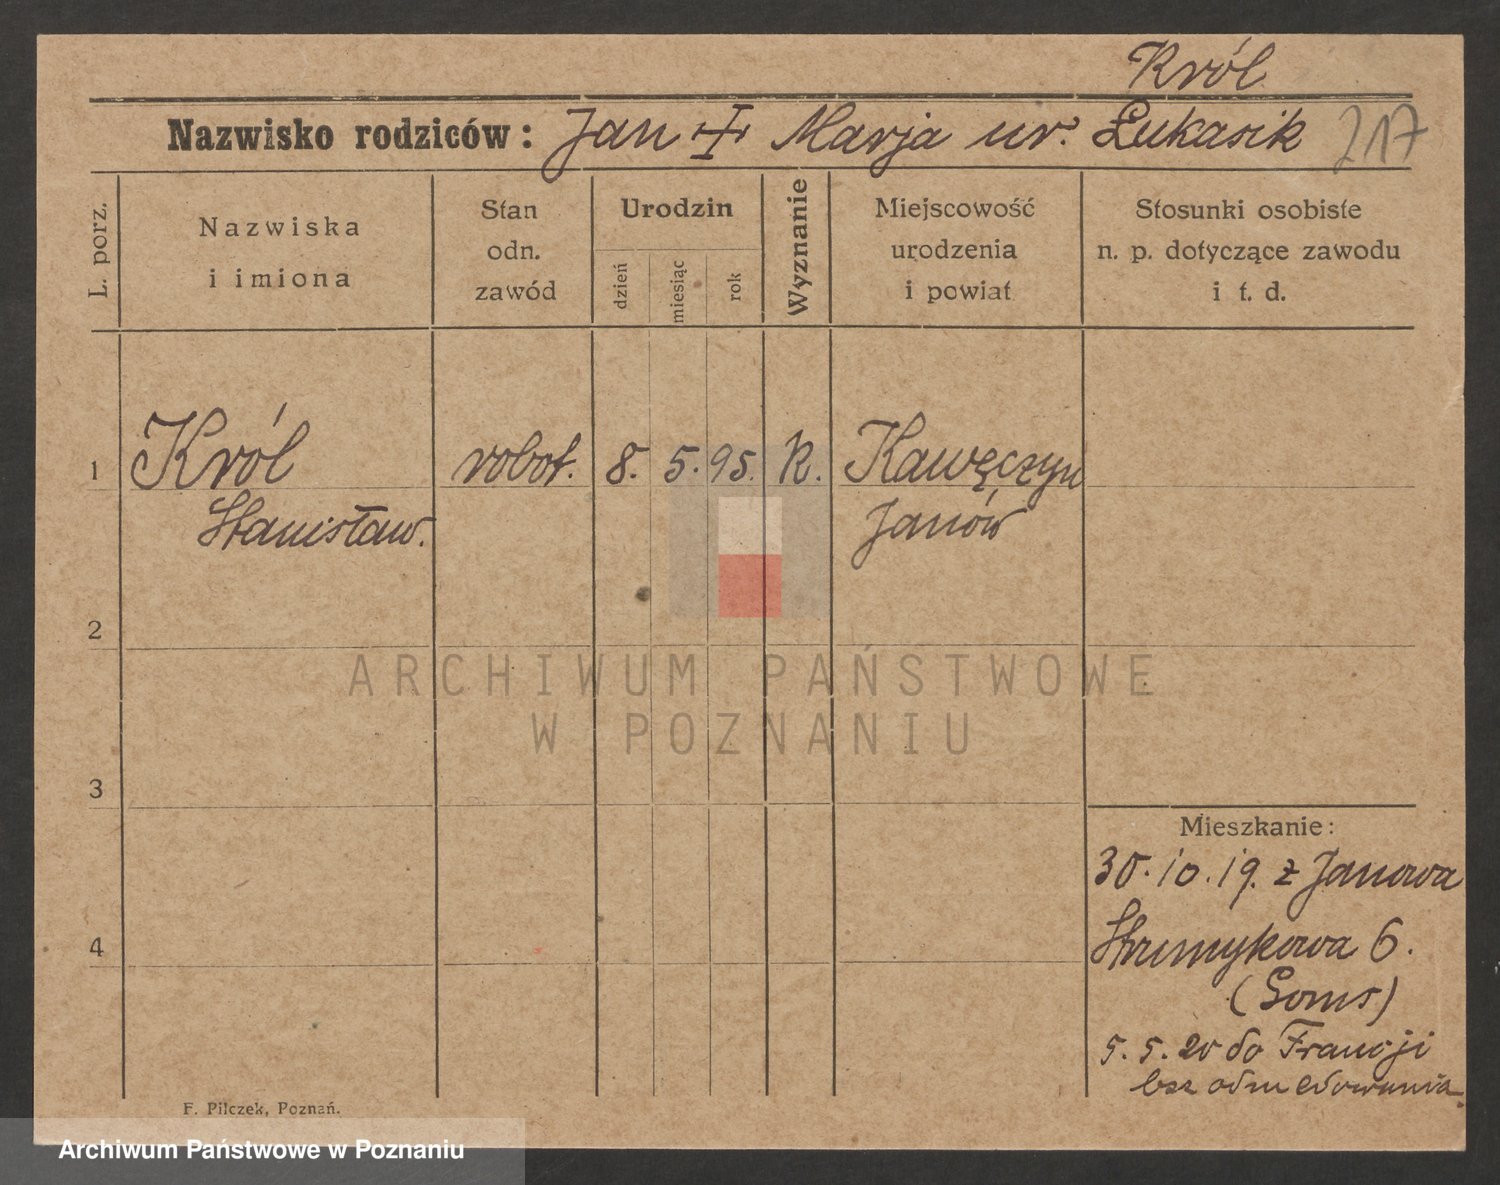 Król
Nazwisko rodziców: Jan + Marja ur. Łukasik 217
L. porz.
Nazwiska
i imiona
Stan
odn.
zawód
Urodzin
dzień
miesiąc
rok
Wyznanie
Miejscowość
urodzenia
i powiat
Stosunki osobiste
n. p. dotyczące zawodu
i t. d.
1 Król robot. 8. 5. 95. K. Kawęczyn
Stanisław. Janów
2
ARCHIWUM PAŃSTWOWE
W POZNANIU
3
Mieszkanie:
30.10.19. z Janowa
Strumykowa 6.
4
5.5.20 do Francji
bez odmeldowania.
F. Pilczek, Poznań.
Archiwum Państwowe w Poznaniu